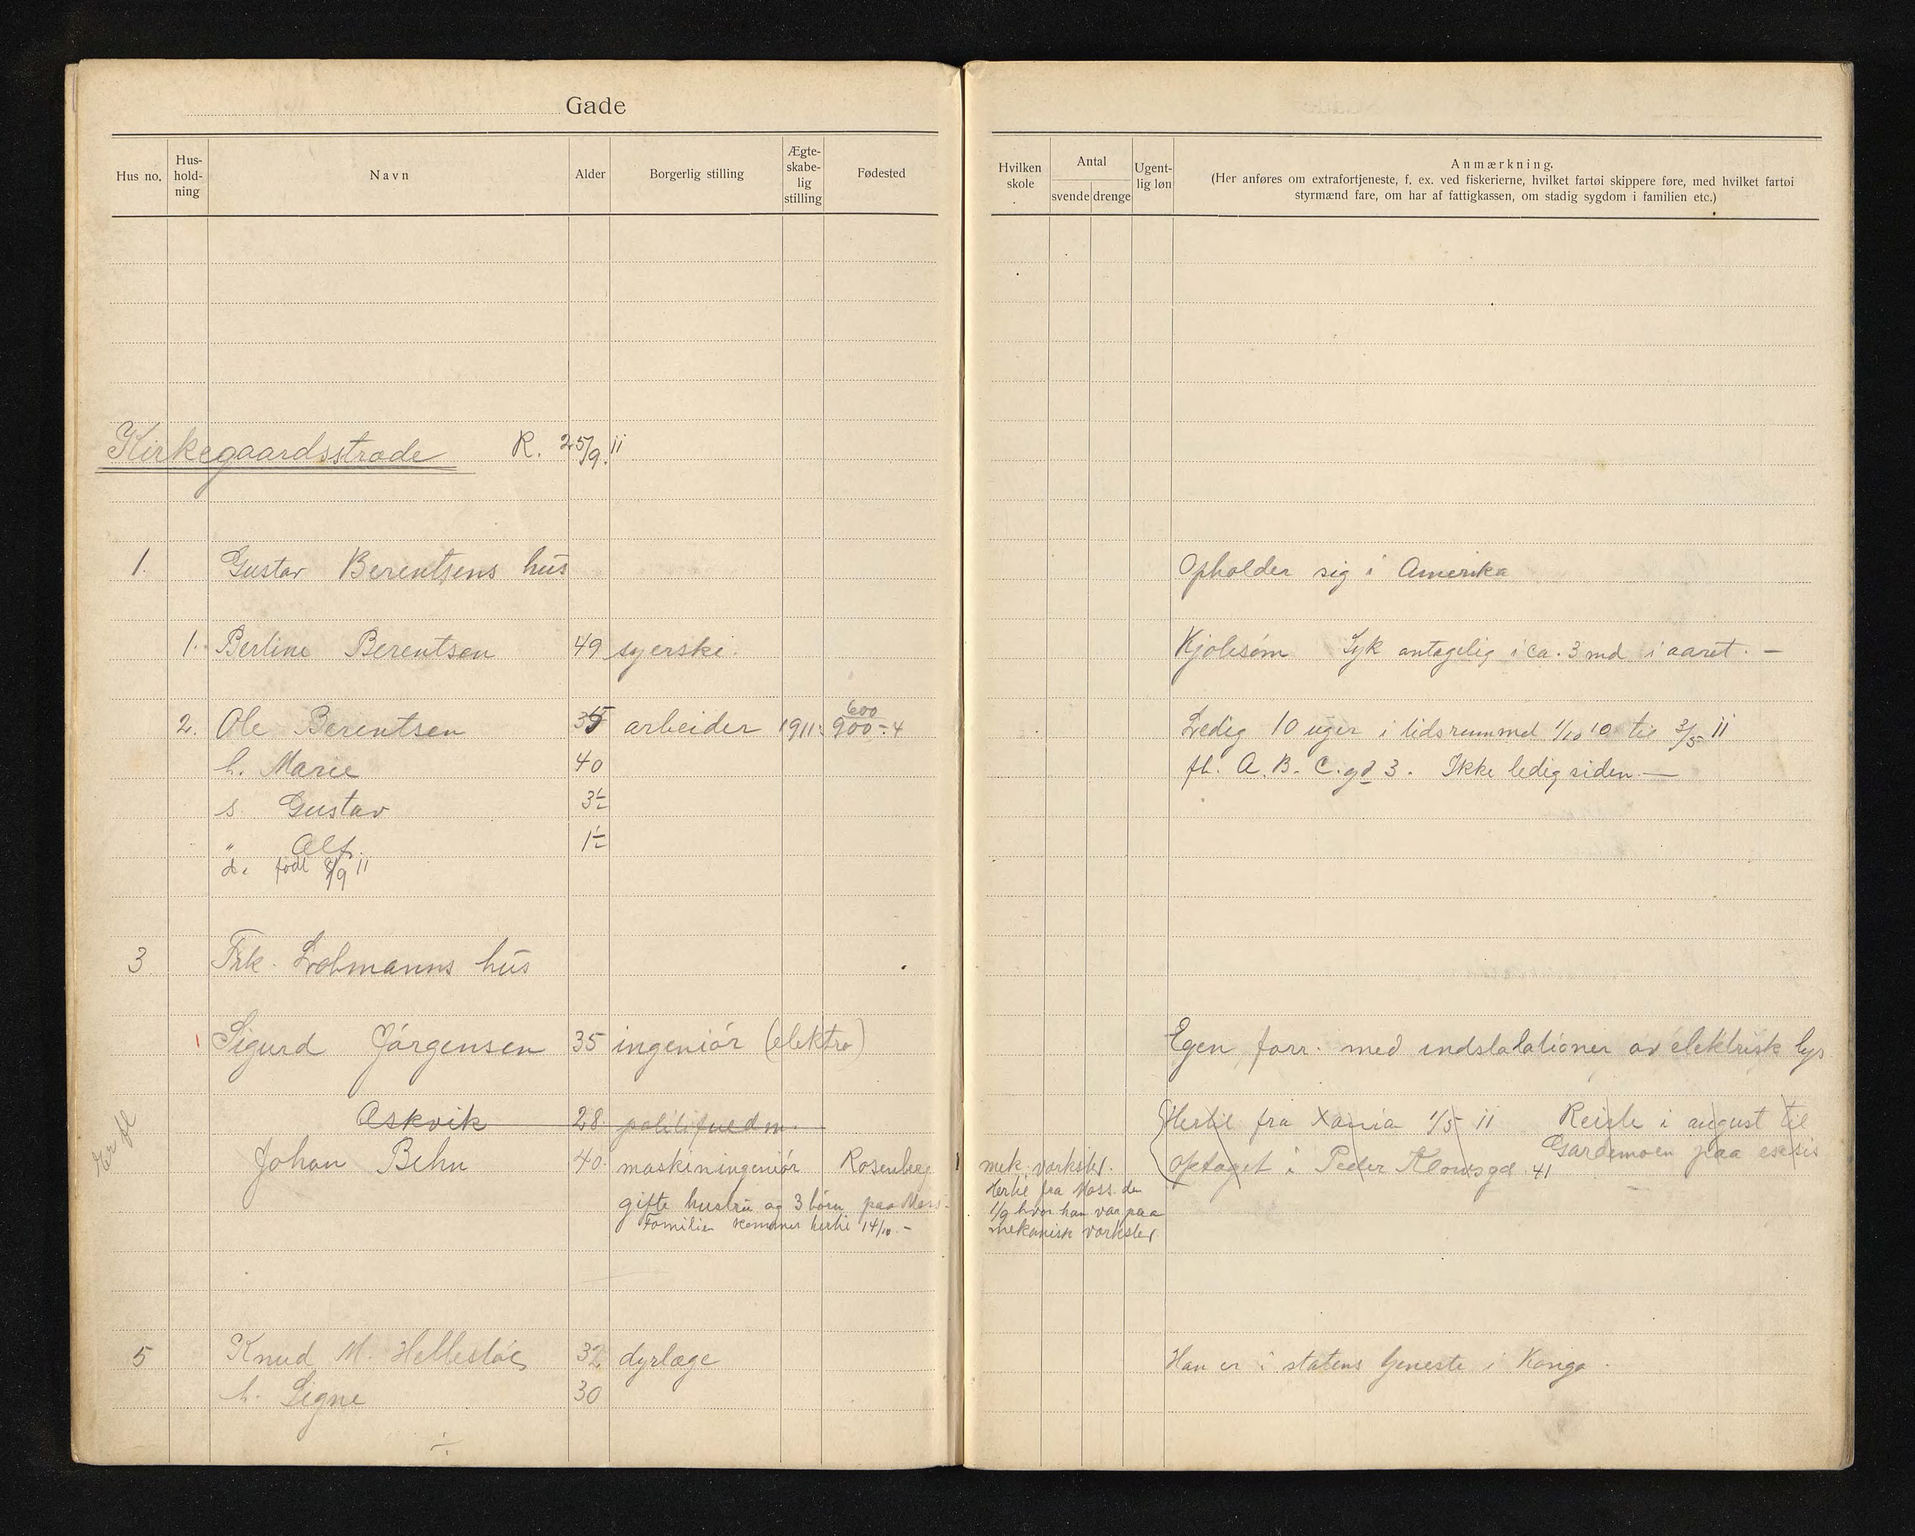 Gade
Hus no. Hus-hold-ning Navn Alder Borgerlig stilling Ægte-skabe-lig stilling Fødested
Kirkegaardsstræde R. 25/9. 11
1. Gustav Berentsens hus
1. Berline Berentsen 49 syerske.
600
2. Ole Berentsen 35 arbeider 1911: 900 - 4
h. Marie 40
s. Gustav 3½
" Alf 1½
d. født 8/9 11
3 Frk. hus
1 Sigurd Jörgensen 35 ingeniör (elektro)
Askvik 28
Johan Behn 40. maskiningeniör Rosenberg
gifte hustru og 3 börn paa Moss.
Familien kommer hertil 14/10. -
5 Knud M. 32 dyrlæge
h. Signe 30
Hvilken skole Antal svende drenge Ugent-lig løn Anmærkning.
(Her anføres om extrafortjeneste, f. ex. ved fiskerierne, hvilket fartøi skippere føre, med hvilket fartøi
styrmænd fare, om har af fattigkassen, om stadig sygdom i familien etc.)
Opholder sig i Amerika
Kjolesöm Syk antagelig i ca. 3 md i aaret. -
Ledig 10 uger i tidsrummet 1/10 10 til 3/5 11
fl. A. B. C. gd 3. Ikke ledig siden. -
Egen forr. med indstalationer av elektrisk lys
Hertil fra Xania 1/5 11 Reiste i august til
Gardemoen paa
optaget i Peder 41
mek. værksted.
Hertil fra Moss. den
1/9 hvor han var paa
mekanisk værksted
Han er i statens tjeneste i Kongo.